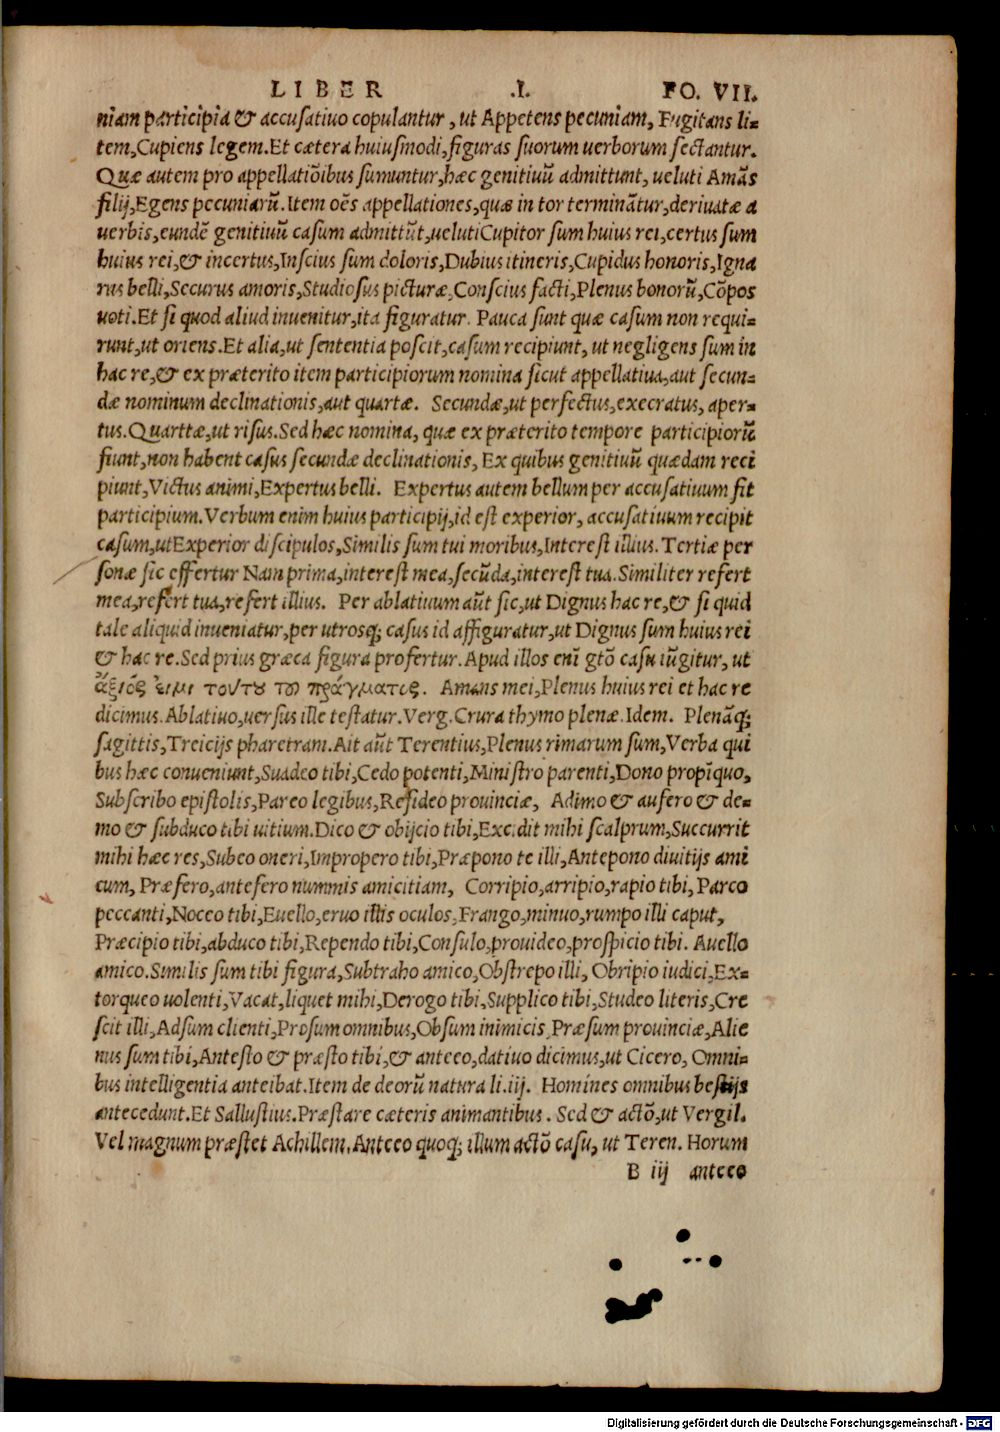 LIBER .I. FO. VII.
niam participia & accusatiuo copulantur, ut Appetens pecuniam, Fugitans li-
tem,Cupiens legem.Et cætera huiusmodi,figuras suorum uerborum sectantur.
Quæ autem pro appellatiõibus sumuntur,hæc genitiuũ admittunt, ueluti Amãs
filij,Egens pecuniarũ.Item oẽs appellationes,quæ in tor terminãtur,deriuatæ a
uerbis,eundẽ genitiuũ casum admittũt,uelutiCupitor sum huius rei,certus sum
huius rei,& incertus,Inscius sum doloris,Dubius itineris,Cupidus honoris,Igna
rus belli,Securus amoris,Studiosus picturæ,Conscius facti,Plenus bonorũ,Cõpos
uoti.Et si quod aliud inuenitur,ita figuratur. Pauca sunt quæ casum non requi-
runt,ut oriens.Et alia,ut sententia poscit,casum recipiunt, ut negligens sum in
hac re,& ex præterito item participiorum nomina sicut appellatiua,aut secun-
dæ nominum declinationis,aut quartæ. Secundæ,ut perfectus,execratus, aper-
tus.Quarttæ,ut risus.Sed hæc nomina, quæ ex præterito tempore participiorũ
fiunt,non habent casus secundæ declinationis, Ex quibus genitiuũ quædam reci
piunt,Victus animi,Expertus belli. Expertus autem bellum per accusatiuum fit
participium.Verbum enim huius participij,id est experior, accusatiuum recipit
casum,utExperior discipulos,Similis sum tui moribus,Interest illius.Tertiæ per
sonæ sic effertur Nam prima,interest mea,secũda,interest tua.Similiter refert
mea,refert tua,refert illius. Per ablatiuum aũt sic,ut Dignus hac re,& si quid
tale aliquid inueniatur,per utrosq; casus id affiguratur,ut Dignus sum huius rei
& hac re.Sed prius græca figura profertur.Apud illos eni gtõ casu iũgitur, ut
ἄξιός εἰμι τούτου του πράγματος. Amans mei,Plenus huius rei et hac re
dicimus.Ablatiuo,uersus ille testatur.Verg.Crura thymo plenæ.Idem. Plenãq;
sagittis,Treicijs pharetram.Ait aũt Terentius,Plenus rimarum sum,Verba qui
bus hæc conueniunt,Suadeo tibi,Cedo potenti,Ministro parenti,Dono propĩquo,
Subscribo epistolis,Pareo legibus,Resideo prouinciæ, Adimo & aufero & de-
mo & subduco tibi uitium.Dico & obijcio tibi,Excidit mihi scalprum,Succurrit
mihi hæc res,Subeo oneri,Impropero tibi,Præpono te illi,Antepono diuitijs ami
cum, Præfero,antefero nummis amicitiam, Corripio,arripio,rapio tibi,Parco
peccanti,Noceo tibi,Euello,eruo illis oculos,Frango,minuo,rumpo illi caput,
Præcipio tibi,abduco tibi,Rependo tibi,Consulo,prouideo,prospicio tibi. Auello
amico.Similis sum tibi figura,Subtraho amico,Obstrepo illi, Obripio iudici,Ex-
torqueo uolenti,Vacat,liquet mihi,Derogo tibi,Supplico tibi,Studeo literis,Cre
scit illi,Adsum clienti,Prosum omnibus,Obsum inimicis,Præsum prouinciæ,Alie
nus sum tibi,Antesto & præsto tibi,& anteeo,datiuo dicimus,ut Cicero, Omni-
bus intelligentia anteibat.Item de deorũ natura li.iij. Homines omnibus bestijs
antecedunt.Et Sallustius.Præstare cæteris animantibus. Sed & actõ,ut Vergil.
Vel magnum præstet Achillem.Anteeo quoq; illum actõ casu, ut Teren. Horum
B iij anteeo
Digitalisierung gefördert durch die Deutsche Forschungsgemeinschaft - DFG